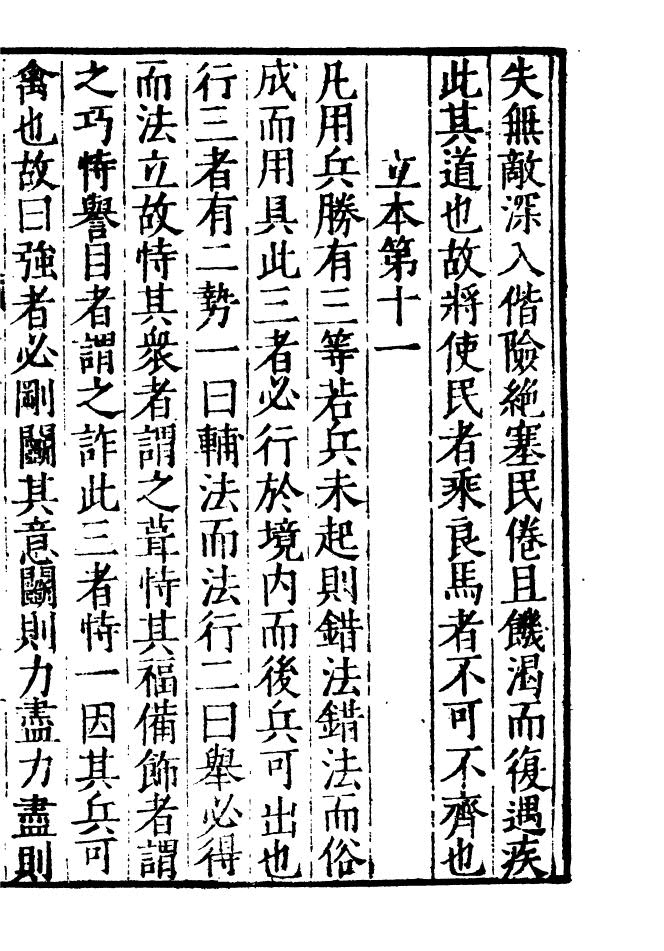 失無敵深入偕險絶塞民倦且饑渴而復遇疾
此其道也故將使民者乘良馬者不可不齊也
立本第十一
凡用兵勝有三等若兵未起則錯法錯法而俗
成而用具此三者必行於境内而後兵可出也
行三者有二勢一曰輔法而法行二曰舉必得
而法立故恃其衆者謂之葺恃其福備飾者謂
之巧恃譽目者謂之詐此三者恃一因其兵可
禽也故曰強者必剛鬭其意鬭則力盡力盡則